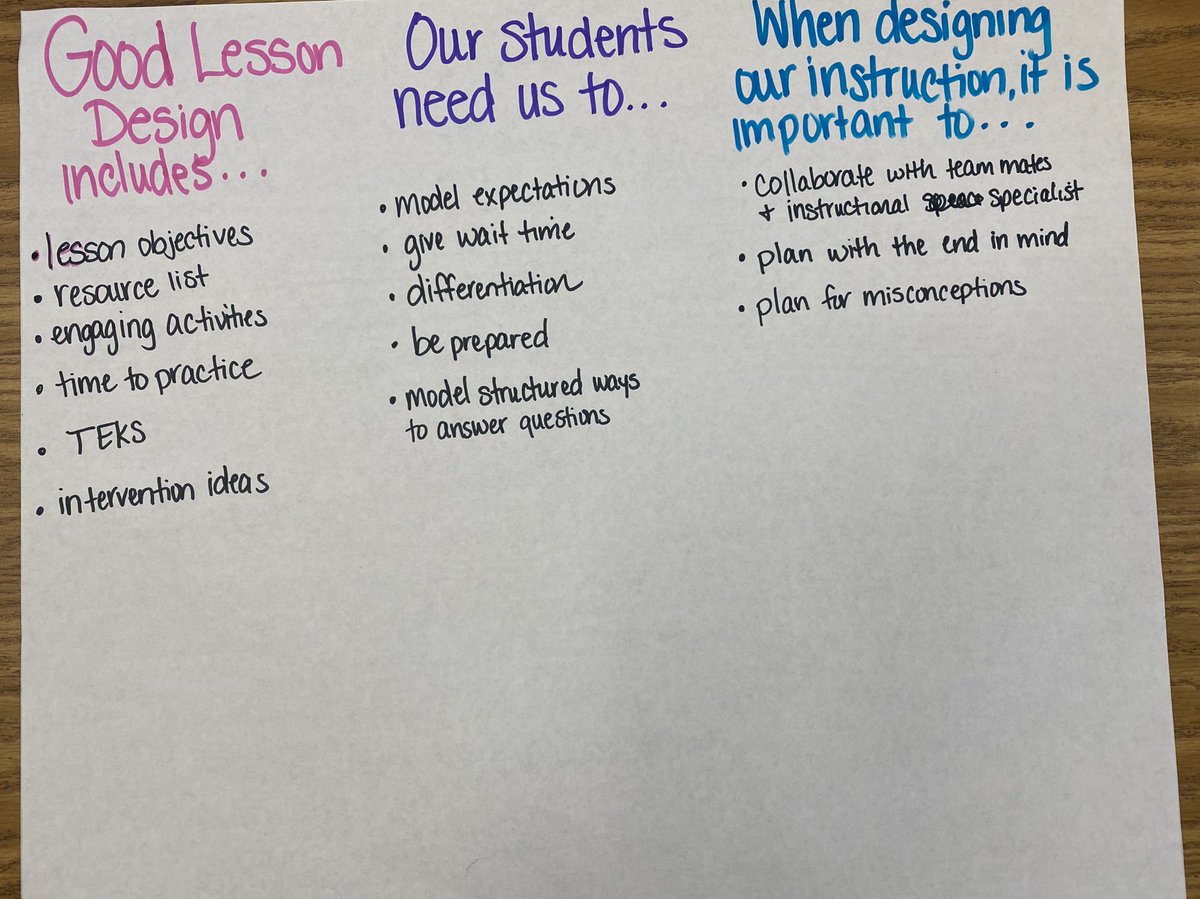 Good Lesson
Design
includes...
• lesson objectives
• resource list
• engaging activities
• time to practice
• TEKS
• intervention ideas
Our students
need us to...
• model expectations
• give wait time
• differentiation
• be prepared
• model structured ways
to answer questions
When designing
our instruction, it is
important to...
• collaborate with team mates
+ instructional specialist
• plan with the end in mind
• plan for misconceptions